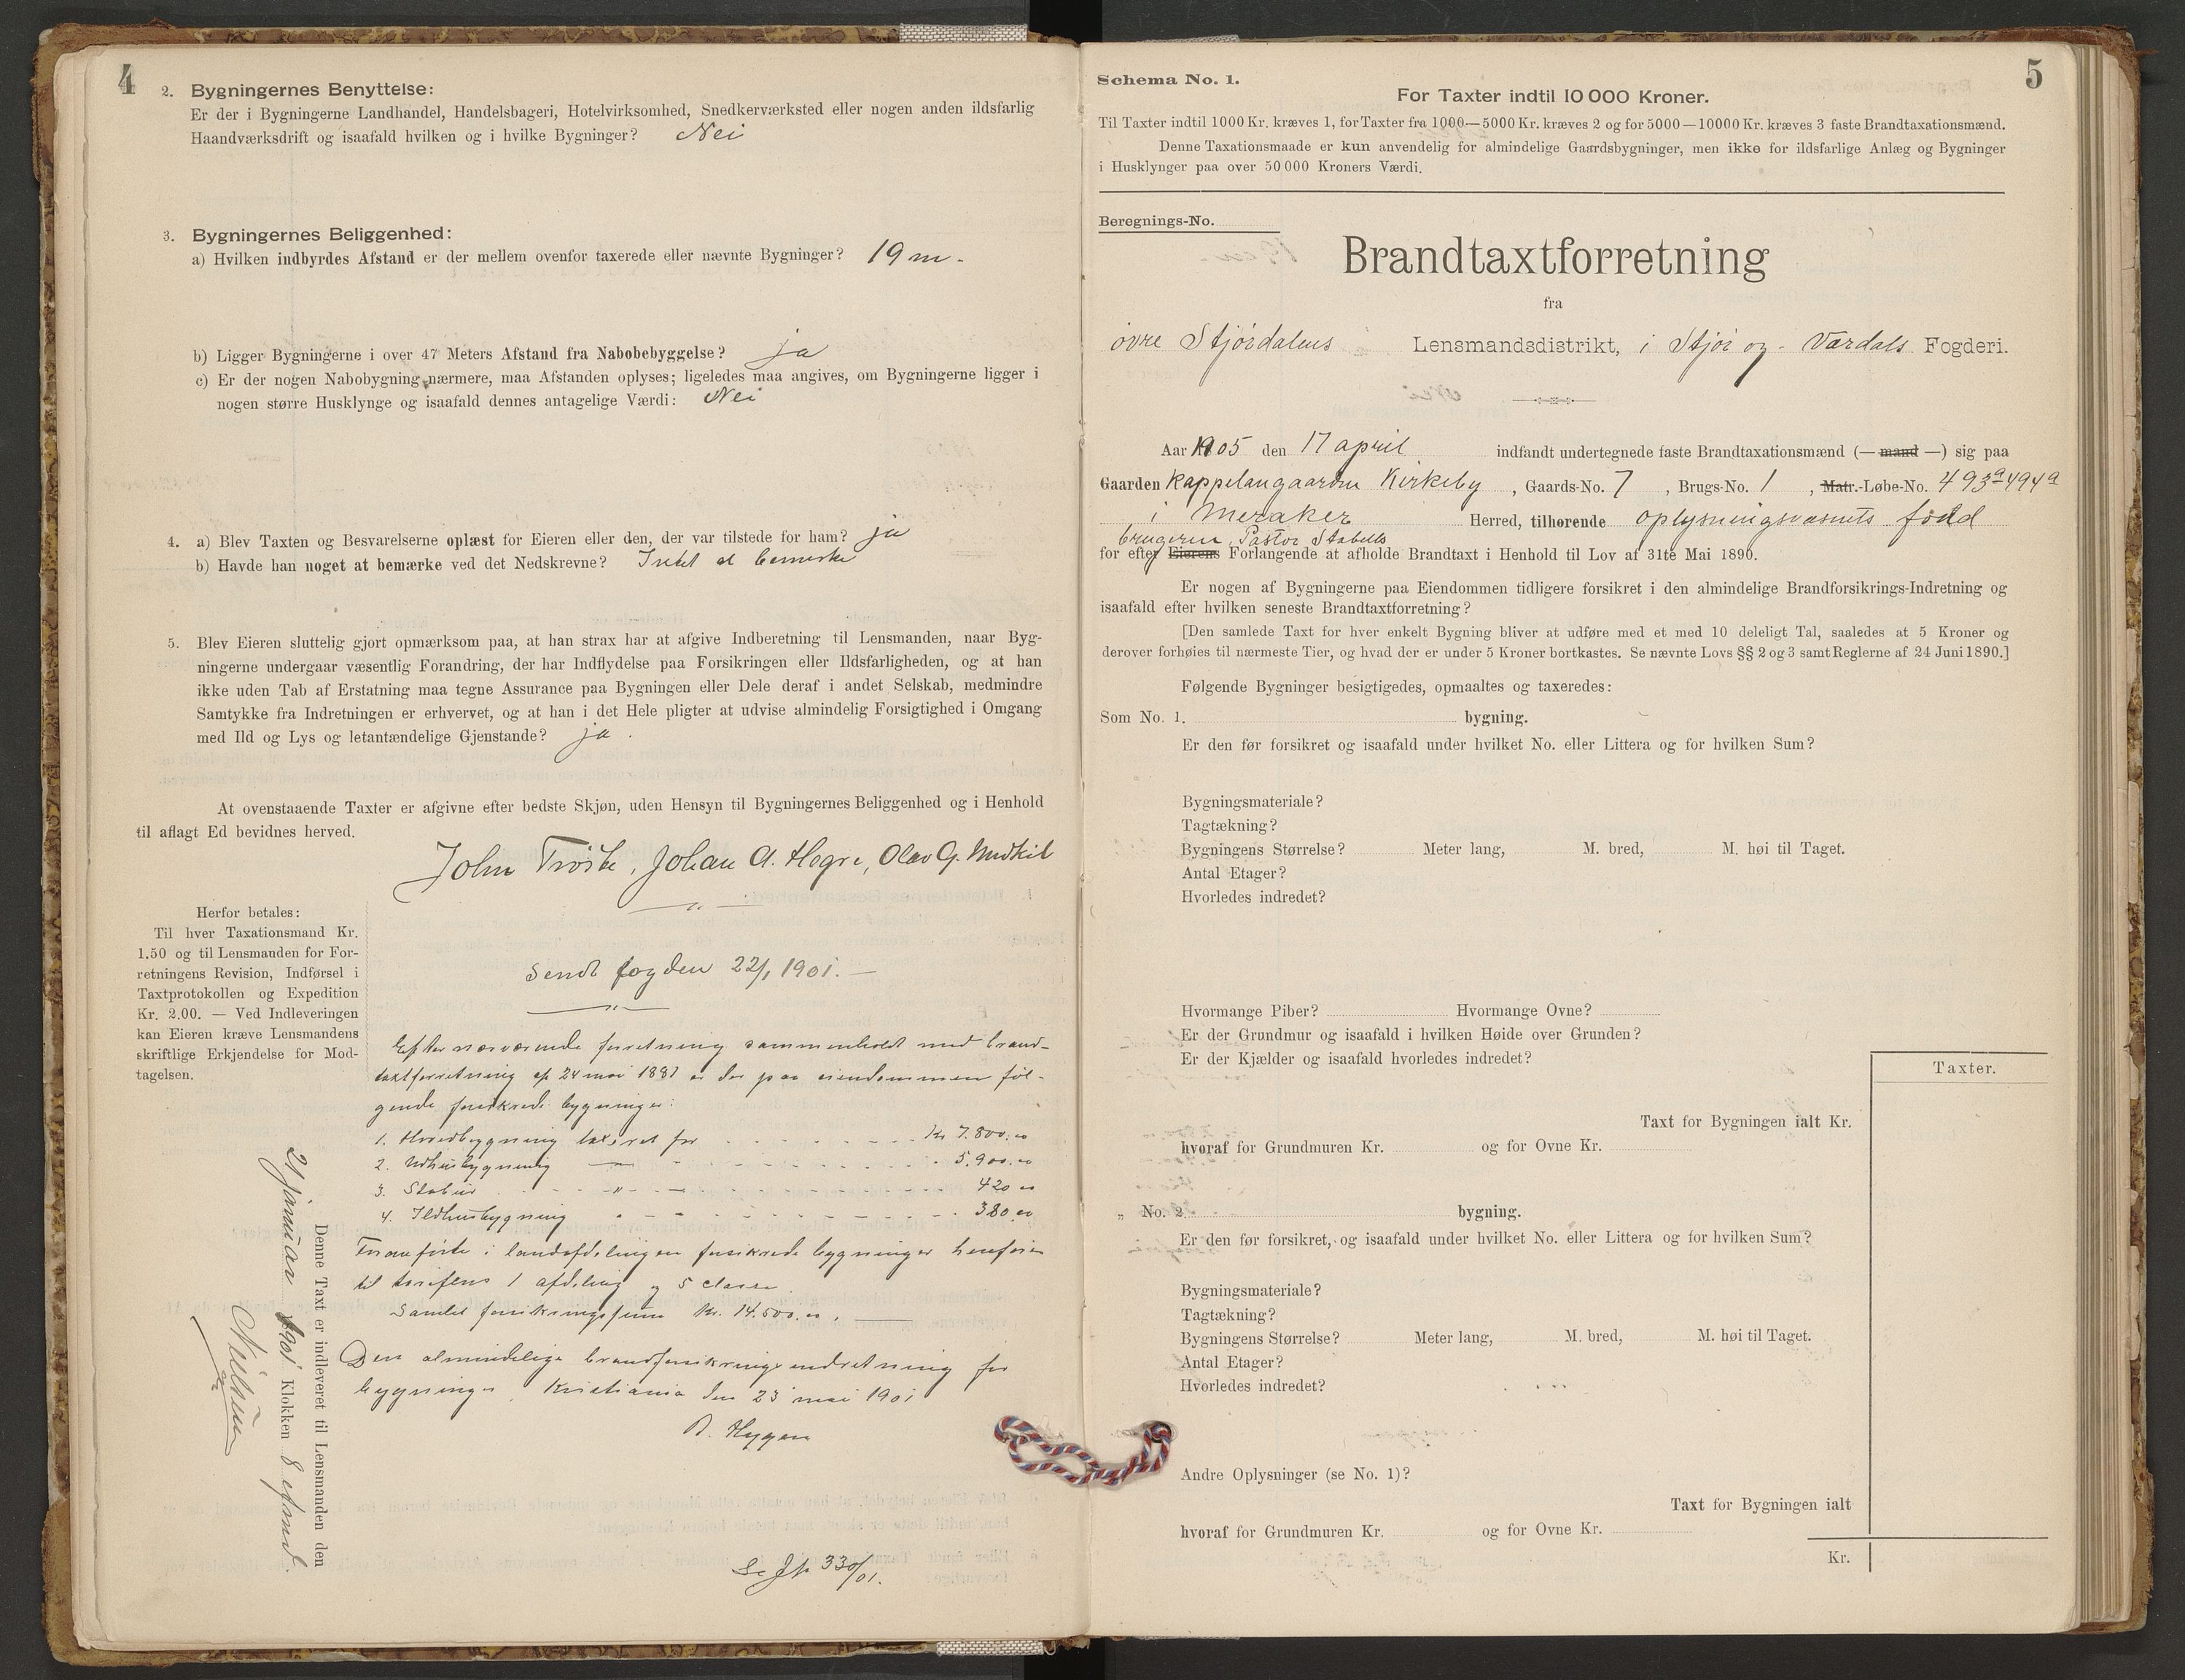 4
2. Bygningernes Benyttelse:
Er der i Bygningerne Landhandel, Handelsbageri, Hotelvirksomhed, Snedkerværksted eller nogen anden ildsfarlig
Haandværksdrift og isaafald hvilken og i hvilke Bygninger? Nei
3. Bygningernes Beliggenhed:
a) Hvilken indbyrdes Afstand er der mellem ovenfor taxerede eller nævnte Bygninger? 19 m -
b) Ligger Bygningerne i over 47 Meters Afstand fra Nabobebyggelse? ja
c) Er der nogen Nabobygning nærmere, maa Afstanden oplyses; ligeledes maa angives, om Bygningerne ligger i
nogen større Husklynge og isaafald dennes antagelige Værdi: Nei
4. a) Blev Taxten og Besvarelserne oplæst for Eieren eller den, der var tilstede for ham? ja
b) Havde han noget at bemærke ved det Nedskrevne? Intet at bemerke
5. Blev Eieren sluttelig gjort opmærksom paa, at han strax har at afgive Indberetning til Lensmanden, naar Byg-
ningerne undergaar væsentlig Forandring, der har Indflydelse paa Forsikringen eller Ildsfarligheden, og at han
ikke uden Tab af Erstatning maa tegne Assurance paa Bygningen eller Dele deraf i andet Selskab, medmindre
Samtykke fra Indretningen er erhvervet, og at han i det Hele pligter at udvise almindelig Forsigtighed i Omgang
med Ild og Lys og letantændelige Gjenstande? ja .
At ovenstaaende Taxter er afgivne efter bedste Skjøn, uden Hensyn til Bygningernes Beliggenhed og i Henhold
til aflagt Ed bevidnes herved.
John Trøite, Johan A. Hegre, Olav G.
Herfor betales:
Til hver Taxationsmand Kr.
1.50 og til Lensmanden for For-
retningens Revision, Indførsel i
Taxtprotokollen og Expedition
Kr. 2.00. — Ved Indleveringen
kan Eieren kræve Lensmandens
skriftlige Erkjendelse for Mod-
tagelsen.
Sendt fogden 22/1 1901. —
Efter nærværende forretning sammenholdt med brand-
taxtforretning af 24 mai 1887 er der paa eiendommen føl-
gende forsikrede bygninger:
1. Hovedbygning taxeret for Kr 7.800.00
2. Udhusbygning — 5.900.00
3. Stabur — " — 420 00
4. Ildhusbygning 380.00
i landafdelingen forsikrede bygninger henføres
til tariffens 1 afdeling og 5 classe
Samlet forsikringssum Kr. 14.500.00. —
Den almindelige brandforsikringsindretning for
bygninger, Kristiania den 23 mai 1901
Hygen
Se Jr. 330/01.
Denne Taxt er indleveret til Lensmanden den
21 januar 1901 Klokken 8 eftmd.
Nielsen
5
Schema No. 1.
For Taxter indtil 10 000 Kroner.
Til Taxter indtil 1000 Kr. kræves 1, for Taxter fra 1000—5000 Kr. kræves 2 og for 5000—10000 Kr. kræves 3 faste Brandtaxationsmænd.
Denne Taxationsmaade er kun anvendelig for almindelige Gaardsbygninger, men ikke for ildsfarlige Anlæg og Bygninger
i Husklynger paa over 50 000 Kroners Værdi.
Beregnings-No.
Brandtaxtforretning
fra
øvre Stjørdalens Lensmandsdistrikt, i Stjør og - Værdals Fogderi.
Aar 1905 den 17 april indfandt undertegnede faste Brandtaxationsmænd (— mand —) sig paa
Gaarden Kappelangaarden Kirkeby , Gaards-No. 7 , Brugs-No. 1 , Matr.-Løbe-No. 493a 494a
i Meraker Herred, tilhørende oplysningsvæsnets fond
brugeren, Pastor Stabells
for efter Eierens Forlangende at afholde Brandtaxt i Henhold til Lov af 31te Mai 1890.
Er nogen af Bygningerne paa Eiendommen tidligere forsikret i den almindelige Brandforsikrings-Indretning og
isaafald efter hvilken seneste Brandtaxtforretning?
[Den samlede Taxt for hver enkelt Bygning bliver at udføre med et med 10 deleligt Tal, saaledes at 5 Kroner og
derover forhøies til nærmeste Tier, og hvad der er under 5 Kroner bortkastes. Se nævnte Lovs §§ 2 og 3 samt Reglerne af 24 Juni 1890.]
Følgende Bygninger besigtigedes, opmaaltes og taxeredes:
Som No. 1. bygning.
Er den før forsikret og isaafald under hvilket No. eller Littera og for hvilken Sum?
Bygningsmateriale?
Tagtækning?
Bygningens Størrelse? Meter lang, M. bred, M. høi til Taget.
Antal Etager?
Hvorledes indredet?
Hvormange Piber? Hvormange Ovne?
Er der Grundmur og isaafald i hvilken Høide over Grunden?
Er der Kjælder og isaafald hvorledes indredet?
Taxter.
Taxt for Bygningen ialt Kr.
hvoraf for Grundmuren Kr. og for Ovne Kr.
„ No. 2. bygning.
Er den før forsikret, og isaafald under hvilket No. eller Littera og for hvilken Sum?
Bygningsmateriale?
Tagtækning?
Bygningens Størrelse? Meter lang, M. bred, M. høi til Taget.
Antal Etager?
Hvorledes indredet?
Andre Oplysninger (se No. 1)?
Taxt for Bygningen ialt
hvoraf for Grundmuren Kr. og for Ovne Kr.
Kr.